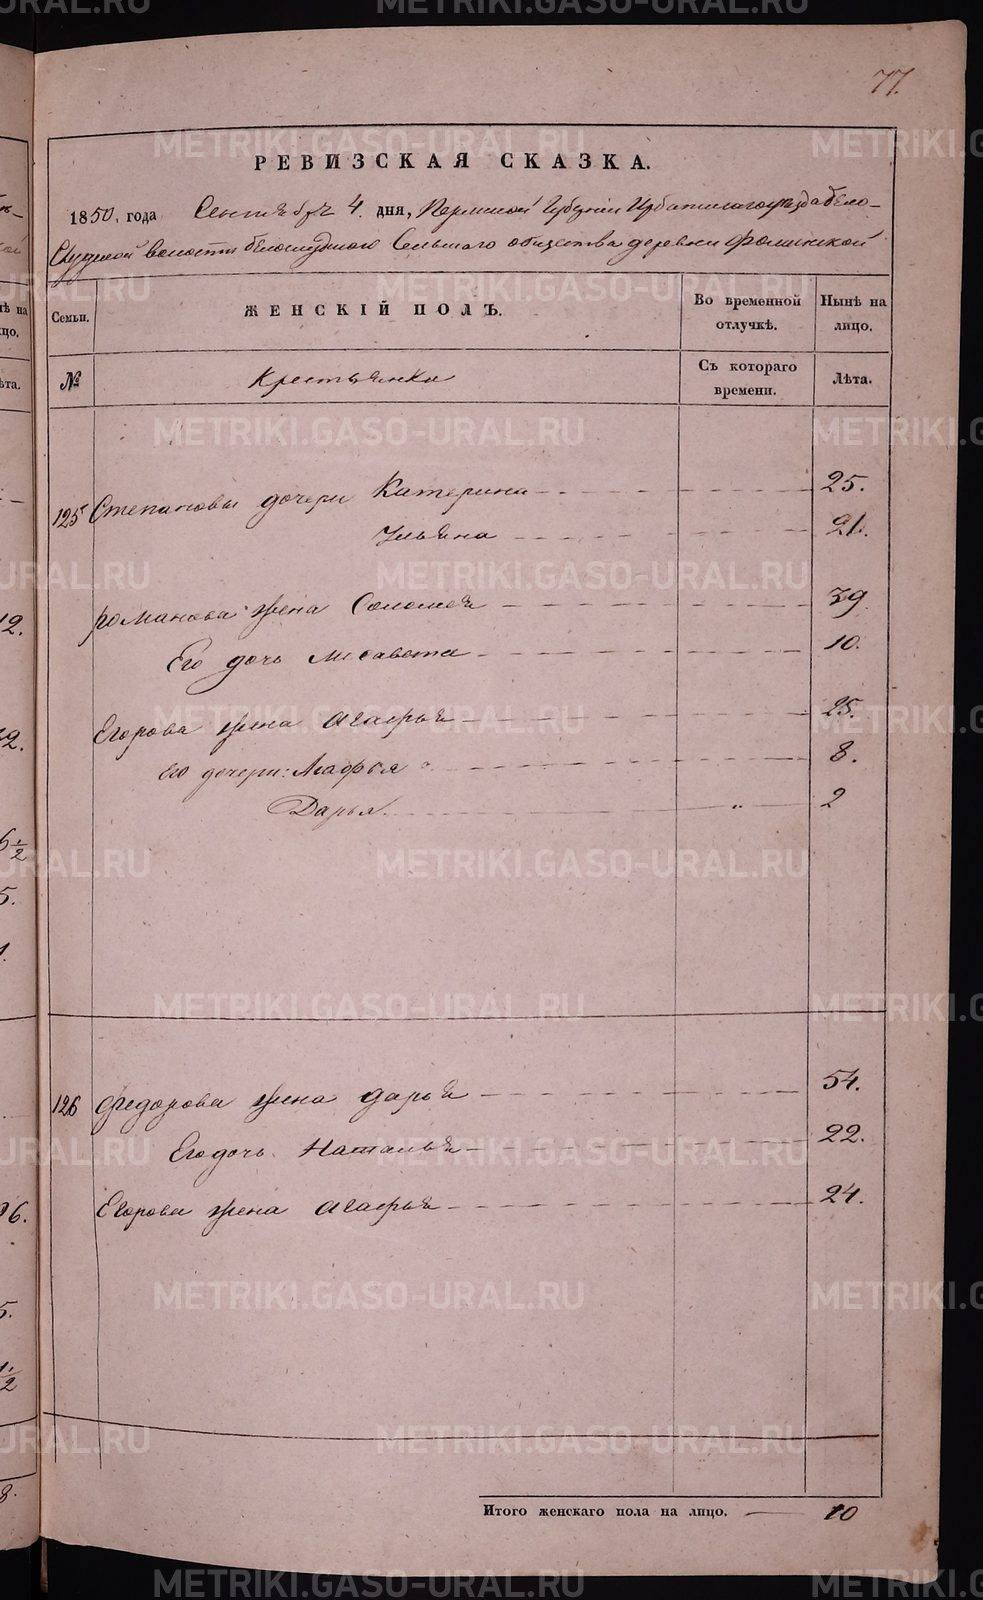 77.
РЕВИЗСКАЯ СКАЗКА.
1850. года Сентября 4. дня, Пермской Губерніи Ирбитскаго уезда бело-
Слудской волости белослудскаго Сельскаго общества деревни Фоминской
Семьи. ЖЕНСКІЙ ПОЛЪ. Во временной отлучкѣ. Нынѣ на лицо.
№ Крестьянки Съ котораго времени. Лѣта.
125 Степановы дочери Катерина 25.
Ульяна 21.
романова жена Соломея 39.
Его дочь Лисавета 10.
Егорова жена Агафья 25.
его дочери: Агафья 8.
Дарья. „ 2
126 Федорова жена дарья 54.
Его дочь Наталья 22.
Егорова жена Агафья 24.
Итого женскаго пола на лицо. 10
METRIKI.GASO-URAL.RU